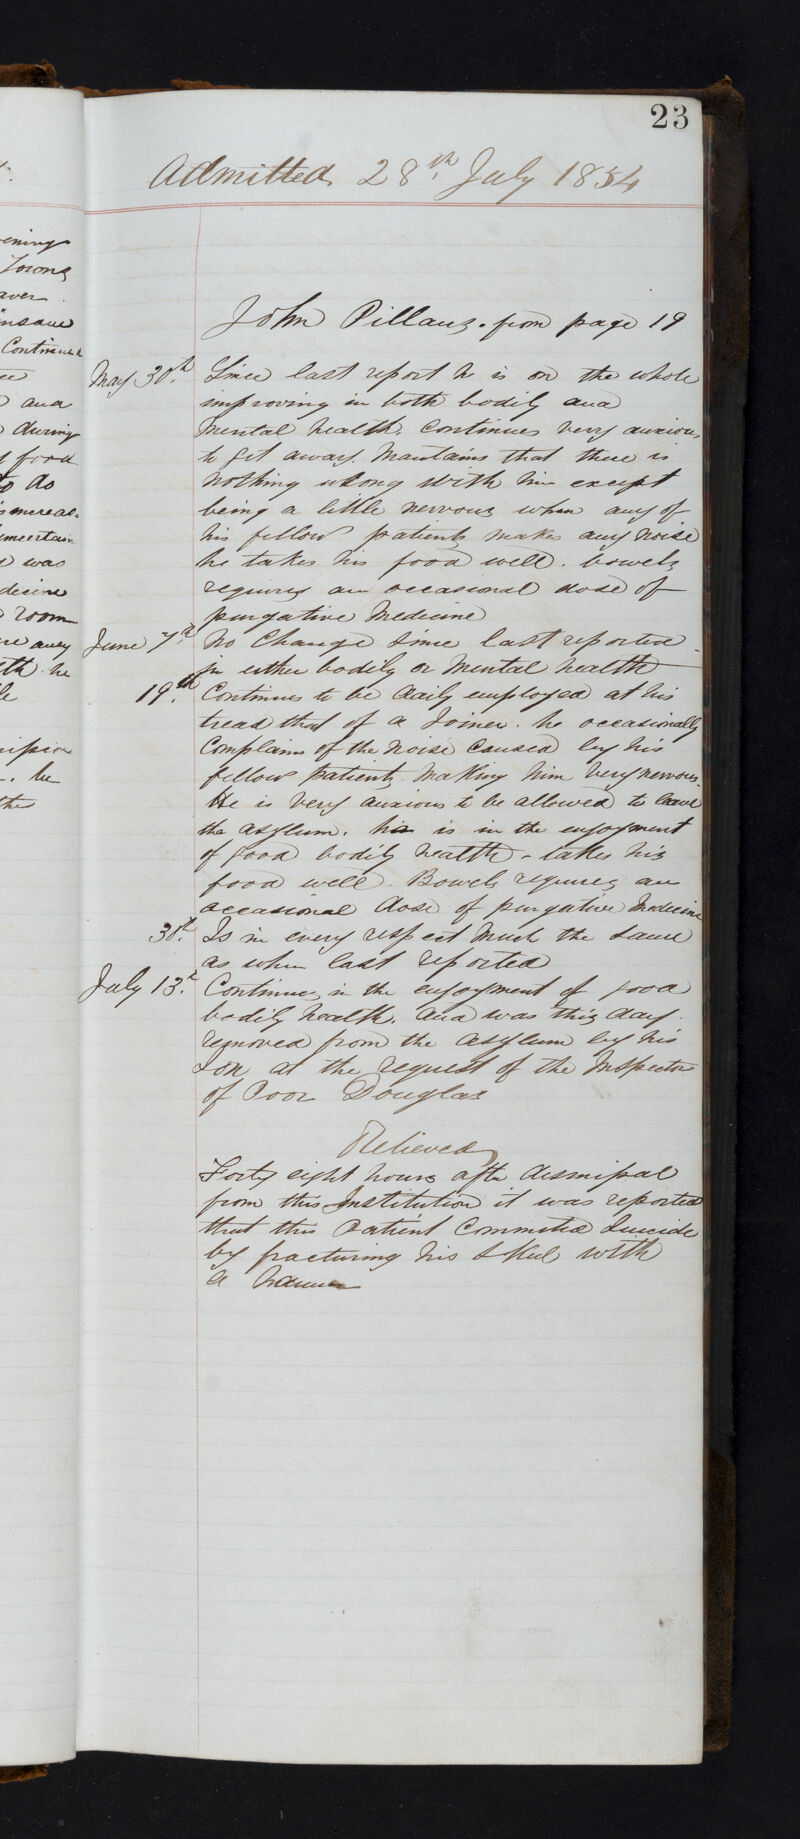 23
Admitted 28th July 1854
John Pillans. from page 19
May 30th. Since last report he is on the whole
improving in both bodily and
mental health. Continues very anxious
to get away. Maintains that there is
nothing wrong with him except
being a little nervous when any of
his fellow patients makes any noise
he takes his food well. bowels
requires an occasional dose of
purgative Medicine
June 7th. No Change Since last reported
in either bodily or Mental health
19th. Continues to be daily employed at his
tread that of a Joiner. he occasionally
Complains of the noise Caused by his
fellow patients making him very nervous.
He is very anxious to be allowed to leave
the asylum. his is in the enjoyment
of good bodily health - takes his
food well. Bowels requires an
occasional dose of purgative Medicine
30th. Is in every respect Much the Same
as when last reported
July 13th. Continues in the enjoyment of good
bodily health. And was this day
removed from the Asylum by his
Son at the request of the Inspector
of Poor Douglas
Relieved
Forty eight hours after dismissal
from this Institution it was reported
that this Patient Committed Suicide
by fracturing his Skul with
a hammer
ening
Towns
aver
insane
Continued
and
during
food
to do
increas=
uncertain
was
decine
room
away
he
he
the